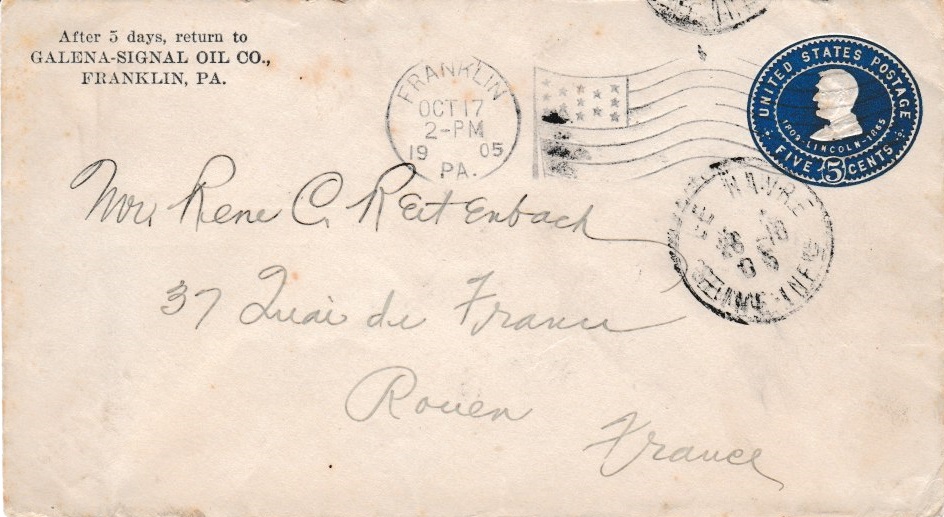 After 5 days, return to
GALENA-SIGNAL OIL CO.,
FRANKLIN, PA.
FRANKLIN
OCT 17
2-PM
1905
PA.
UNITED STATES POSTAGE
1809-LINCOLN-1865
FIVE 5 CENTS
HAVRE
SEINE-INFRE
Mr. Rene C. Reitenbach
37 Quai de France
Rouen
France